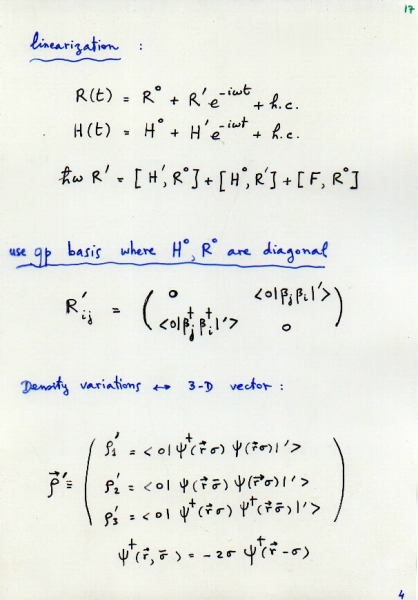 17
linearization :
R(t) = R° + R' e^{-iωt} + h.c.
H(t) = H° + H' e^{-iωt} + h.c.
ħω R' = [H', R°] + [H°, R'] + [F, R°]
use qp basis where H°, R° are diagonal
R'ᵢⱼ = ( 0 <0|βⱼβᵢ|'>
<0|βⱼ†βᵢ†|'> 0 )
Density variations ↔ 3-D vector :
ρ⃗' ≡ ( ρ'₁ = <0| ψ†(r⃗σ) ψ(r⃗σ)|'>
ρ'₂ = <0| ψ(r⃗σ̄) ψ(r⃗σ)|'>
ρ'₃ = <0| ψ†(r⃗σ) ψ†(r⃗σ̄)|'> )
ψ†(r⃗,σ̄) = -2σ ψ†(r⃗-σ)
4